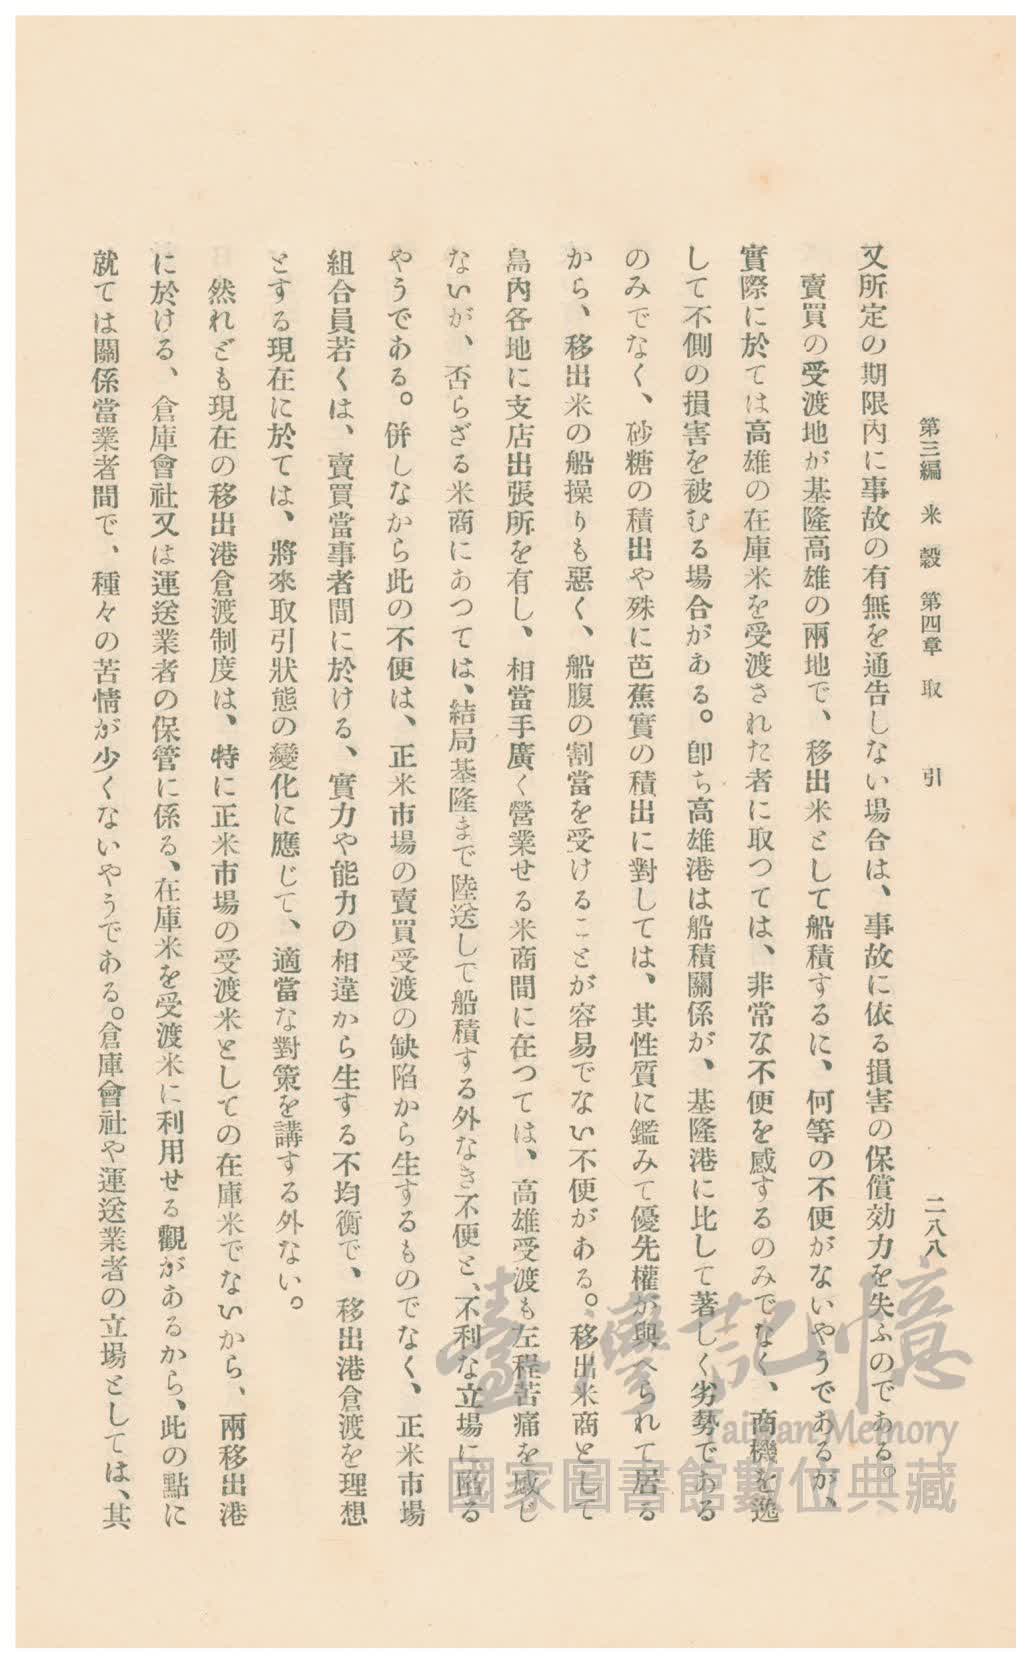 第三編 米穀 第四章 取引 二八八
又所定の期限內に事故の有無を通告しない場合は、事故に依る損害の保償効力を失ふのである。
賣買の受渡地が基隆高雄の兩地で、移出米として船積するに、何等の不便がないやうであるが、
實際に於ては高雄の在庫米を受渡された者に取つては、非常な不便を感するのみでなく、商機を逸
して不側の損害を被むる場合がある。卽ち高雄港は船積關係が、基隆港に比して著しく劣勢である
のみでなく、砂糖の積出や殊に芭蕉實の積出に對しては、其性質に鑑みて優先權が與へられて居る
から、移出米の船操りも惡く、船腹の割當を受けることが容易でない不便がある。移出米商として
島內各地に支店出張所を有し、相當手廣く營業せる米商間に在つては、高雄受渡も左程苦痛を感じ
ないが、否らざる米商にあつては、結局基隆まで陸送して船積する外なき不便と、不利な立場に陷る
やうである。併しながら此の不便は、正米市場の賣買受渡の缺陷から生するものでなく、正米市場
組合員若くは、賣買當事者間に於ける、實力や能力の相違から生する不均衡で、移出港倉渡を理想
とする現在に於ては、將來取引狀態の變化に應じて、適當な對策を講する外ない。
然れども現在の移出港倉渡制度は、特に正米市場の受渡米としての在庫米でないから、兩移出港
に於ける、倉庫會社又は運送業者の保管に係る、在庫米を受渡米に利用せる觀があるから、此の點に
就ては關係當業者間で、種々の苦情が少くないやうである。倉庫會社や運送業者の立場としては、其
臺灣記憶
Taiwan Memory
國家圖書館數位典藏